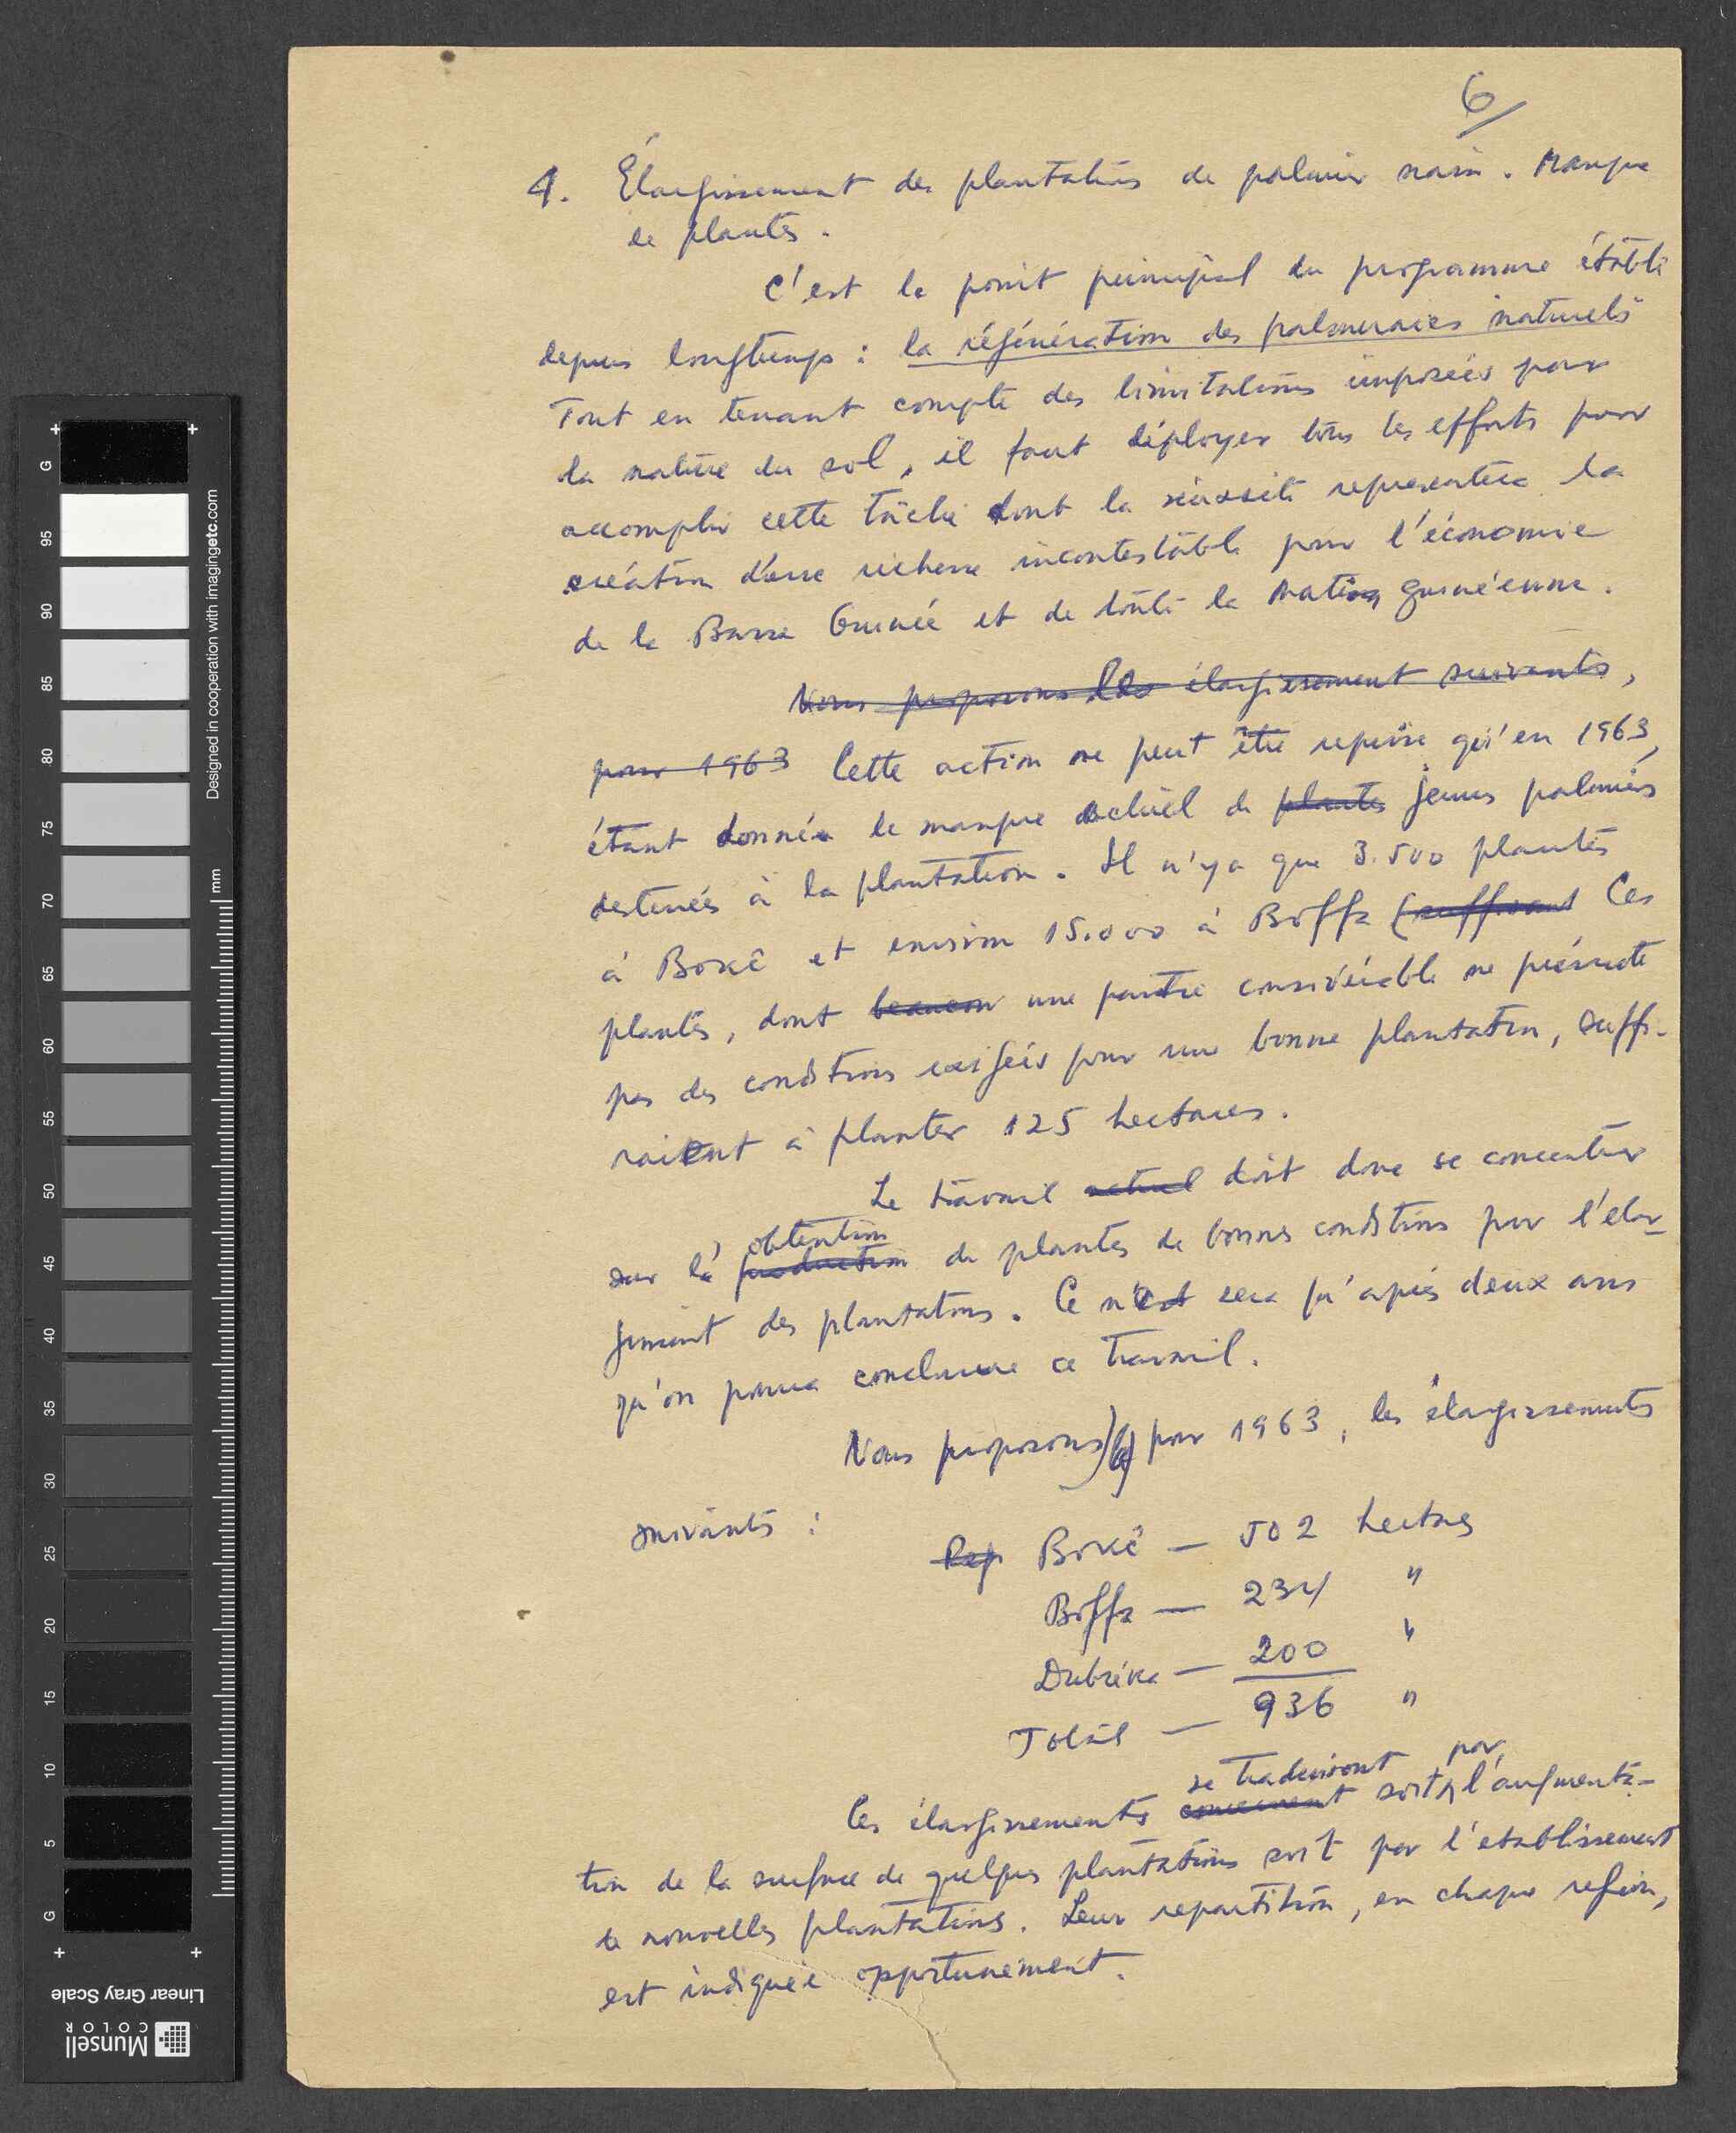 6/
4. Élargissement des plantations de palmier nain. Manque
de plantes.
C'est le point principal du programme établi
depuis longtemps : la régénération des palmeraies naturels
Tout en tenant compte des limitations imposées par
la nature du sol, il faut déployer tous les efforts pour
accomplir cette tâche dont la réussite représentera la
création d'une richesse incontestable pour l'économie
de la Basse Guinée et de toute la Nation guinéenne.
Nous proposons les élargissement suivants,
pour 1963 Cette action ne peut être reprise qu'en 1963,
étant donnée le manque actuel de plantes jeunes palmiers
destinées à la plantation. Il n'y a que 3.500 plantes
à Boké et environ 15.000 à Boffa (suffisant Ces
plantes, dont beaucou une partie considérable ne présente
pas des conditions exigées pour une bonne plantation, suffi-
raient à planter 125 hectares.
Le travail actuel doit donc se concentrer
obtention
sur la production de plantes de bonnes conditions pour l'élar-
gissement des plantations. Ce n'est sera qu'après deux ans
qu'on pourra conclure ce travail.
Nous proposons, pour 1963, les élargissements
suivants :
Rég Boké — 502 hectares
Boffa — 234 "
Dubréka — 200 "
Total — 936 "
se traduiront par
Ces élargissements concernent soit l'augmenta-
tion de la surface de quelques plantations soit par l'etablissement
de nouvelles plantations. Leur repartition, en chaque region,
est indiquée opportunement.
95
90
85
80
75
70
65
60
55
50
45
40
35
30
25
20
15
10
5
G
G
mm
Designed in cooperation with imagingetc.com
Linear Gray Scale
Munsell
COLOR